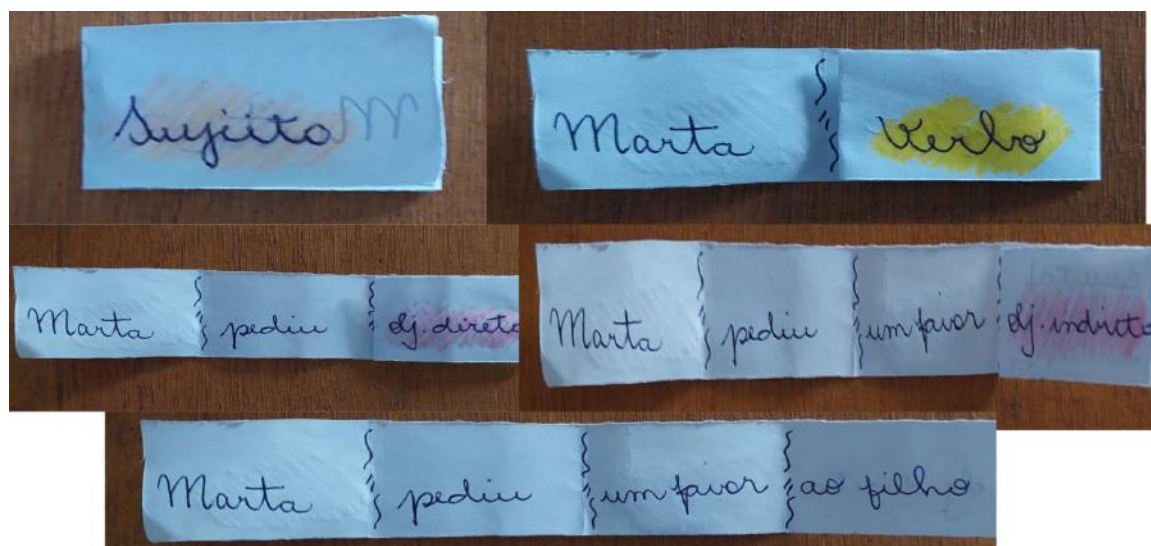 Sujeito
Marta Verbo
Marta pediu obj. direto
Marta pediu um favor obj. indireto
Marta pediu um favor ao filho